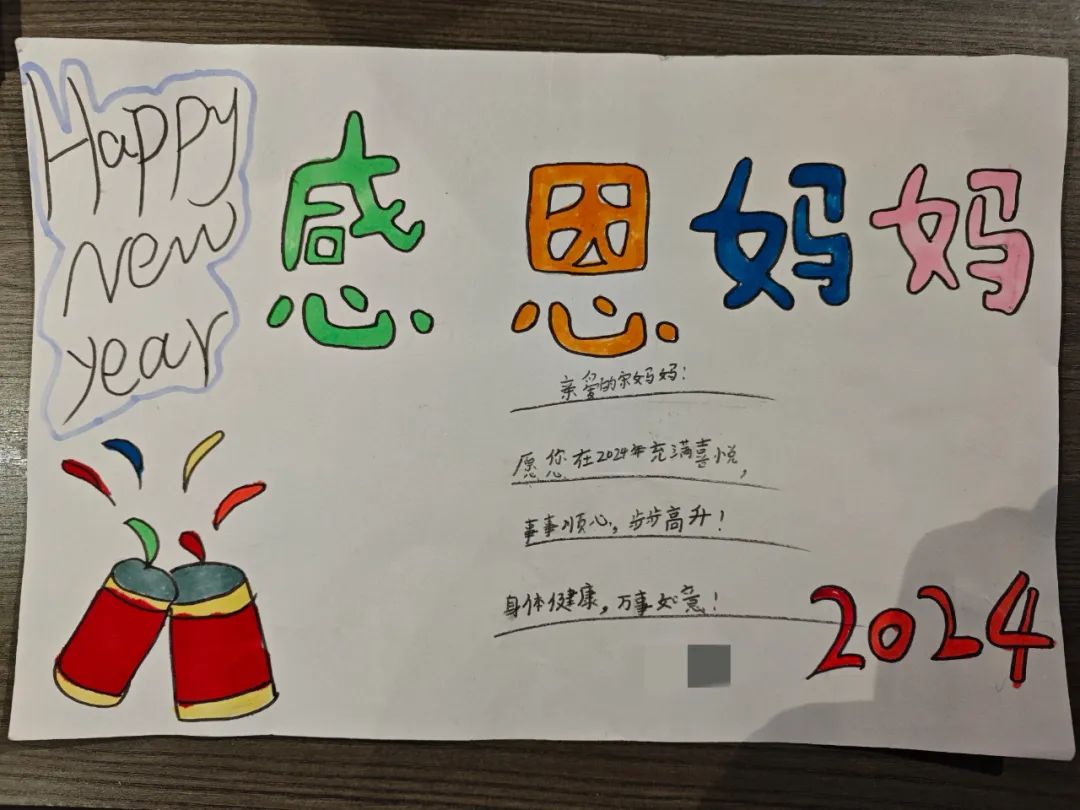 Happy
New
year
感恩妈妈
亲爱的宋妈妈：
愿您在2024年充满喜悦，
事事顺心，步步高升！
身体健康，万事如意！
2024